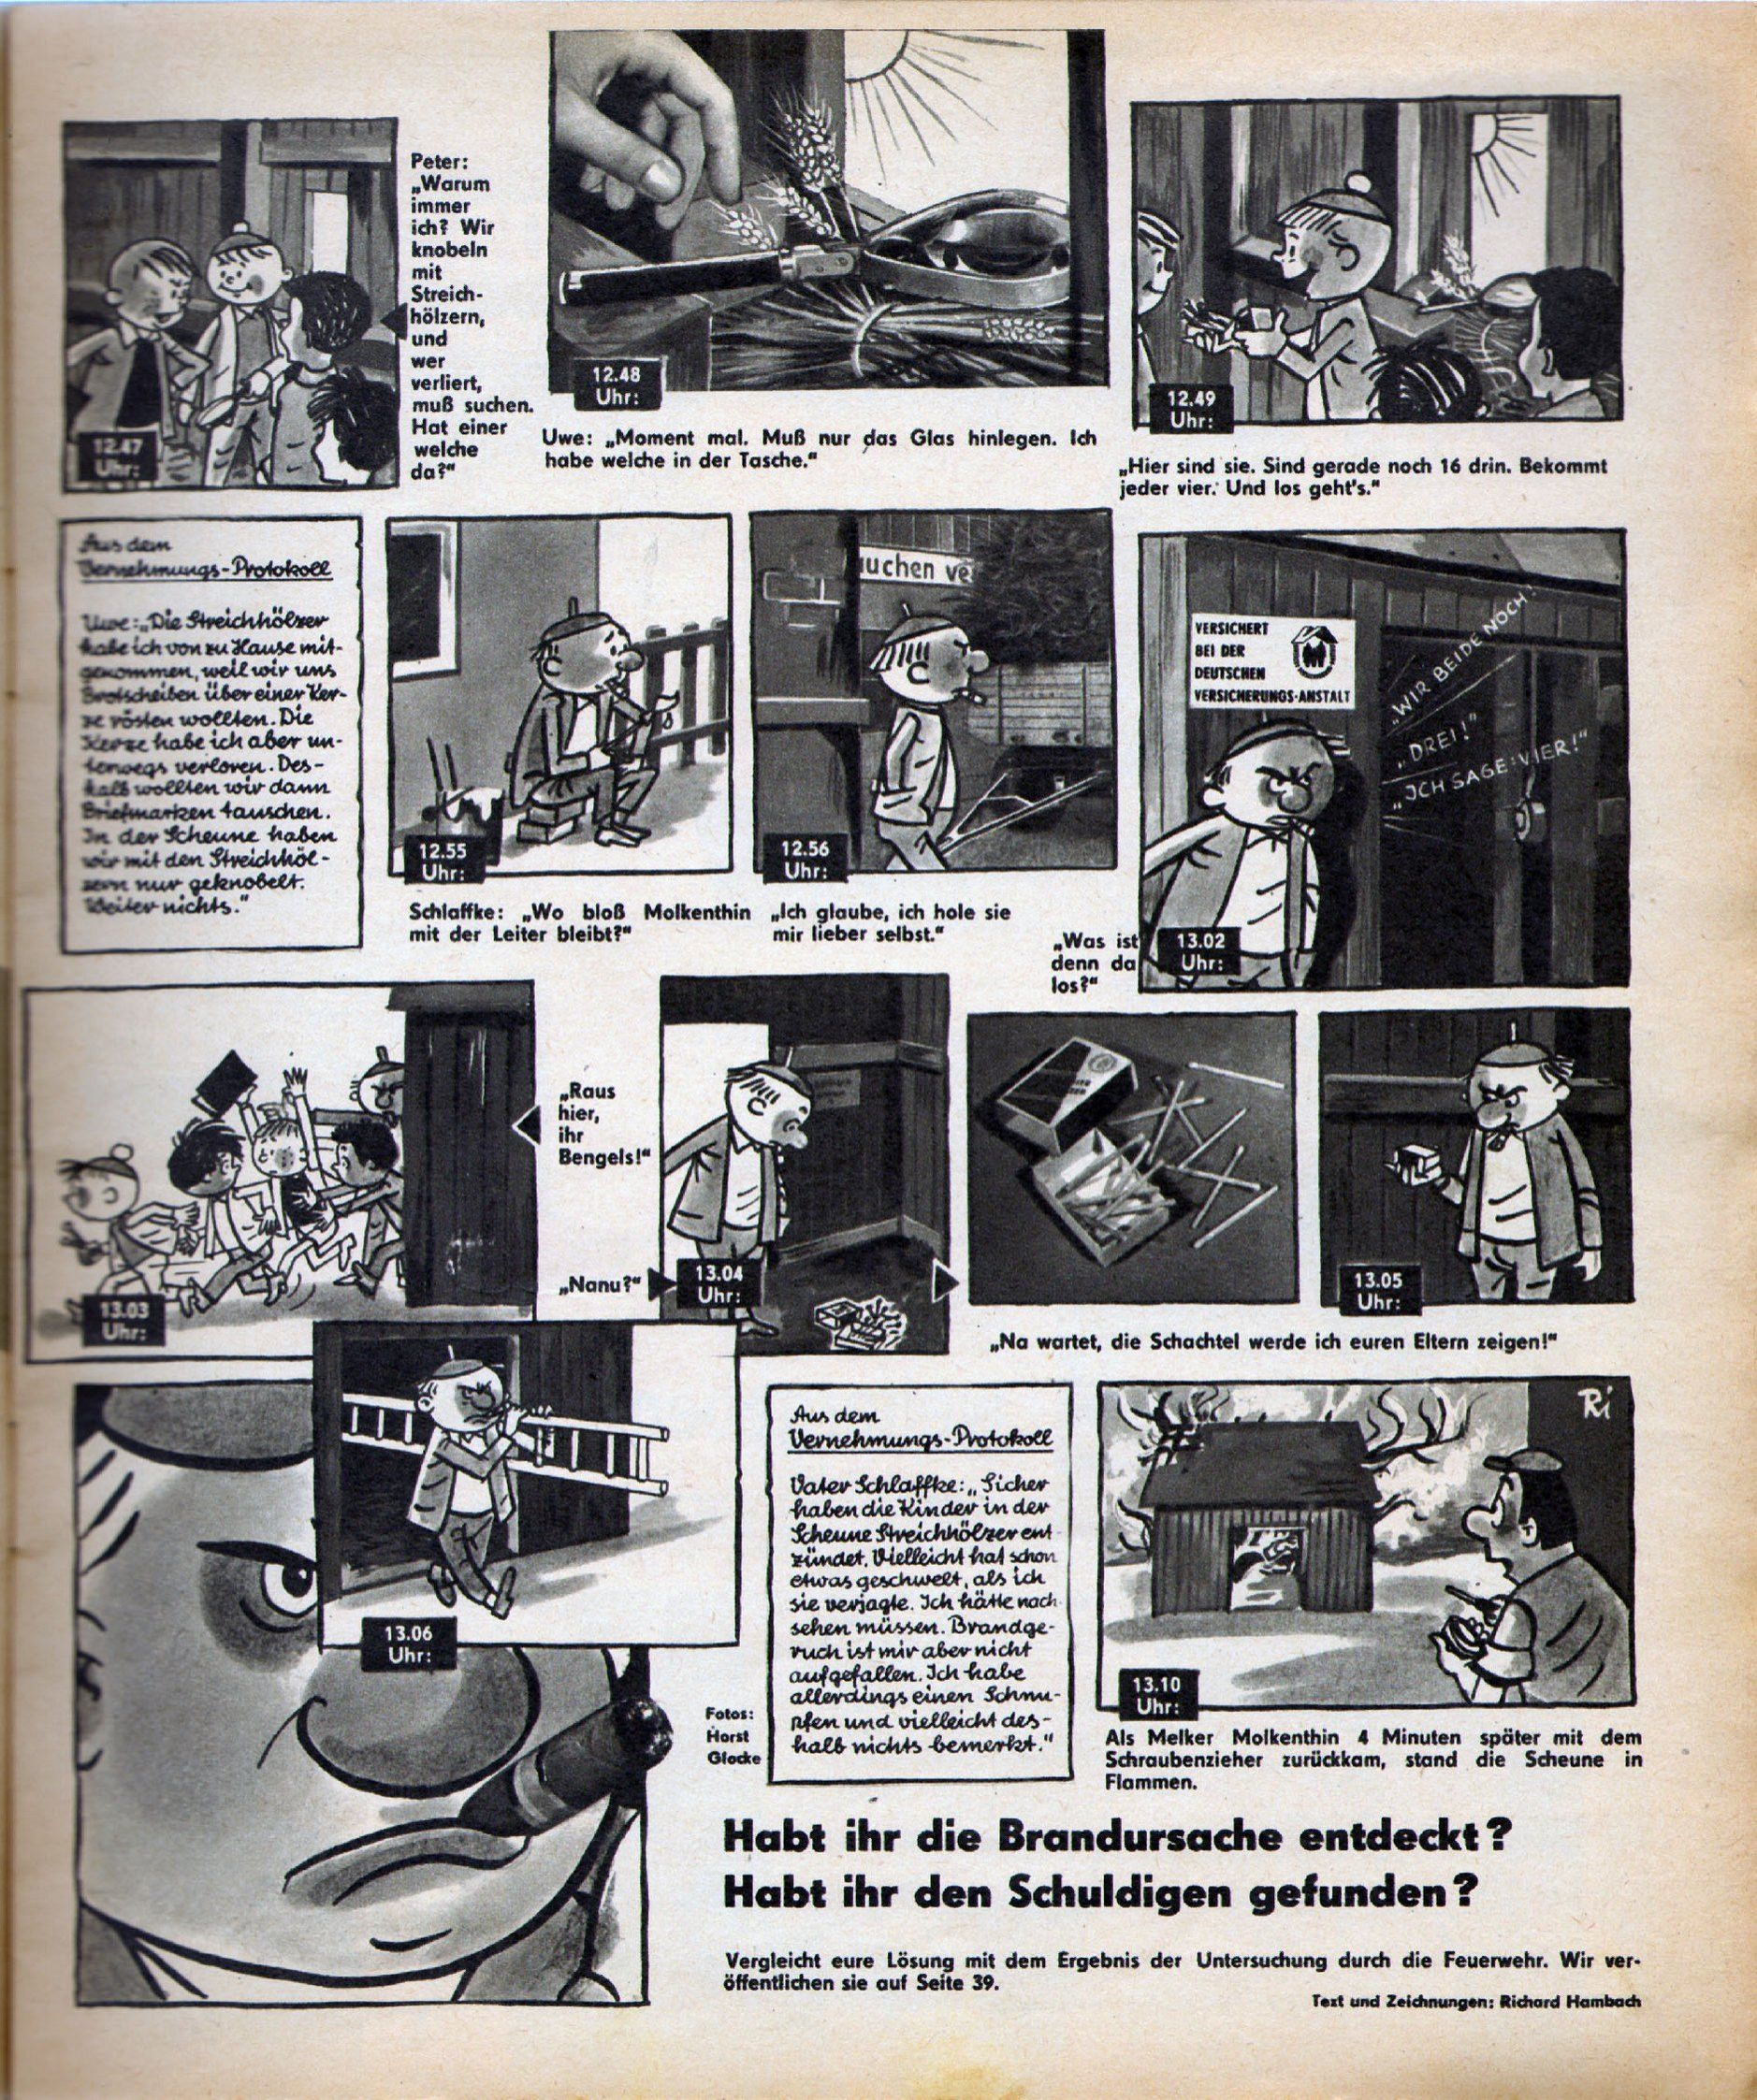 Peter:
„Warum
immer
ich? Wir
knobeln
mit
Streich-
hölzern,
und
wer
verliert,
muß suchen.
Hat einer
welche
da?“
12.47
Uhr:
12.48
Uhr:
Uwe: „Moment mal. Muß nur das Glas hinlegen. Ich
habe welche in der Tasche.“
12.49
Uhr:
„Hier sind sie. Sind gerade noch 16 drin. Bekommt
jeder vier. Und los geht's.“
Aus dem
Vernehmungs-Protokoll
Uwe: „Die Streichhölzer
habe ich von zu Hause mit-
genommen, weil wir uns
Brotscheiben über einer Ker-
ze rösten wollten. Die
Kerze habe ich aber un-
terwegs verloren. Des-
halb wollten wir dann
Briefmarken tauschen.
In der Scheune haben
wir mit den Streichhöl-
zern nur geknobelt.
Weiter nichts.“
12.55
Uhr:
Schlaffke: „Wo bloß Molkenthin
mit der Leiter bleibt?“
uchen ve
12.56
Uhr:
„Ich glaube, ich hole sie
mir lieber selbst.“
VERSICHERT
BEI DER
DEUTSCHEN
VERSICHERUNGS-ANSTALT
„WIR BEIDE NOCH!“
„DREI!“
„ICH SAGE: VIER!“
„Was ist
denn da
los?“
13.02
Uhr:
13.03
Uhr:
„Raus
hier,
ihr
Bengels!“
„Nanu?“
13.04
Uhr:
13.05
Uhr:
„Na wartet, die Schachtel werde ich euren Eltern zeigen!“
13.06
Uhr:
Fotos:
Horst
Glocke
Aus dem
Vernehmungs-Protokoll
Vater Schlaffke: „Sicher
haben die Kinder in der
Scheune Streichhölzer ent-
zündet. Vielleicht hat schon
etwas geschwelt, als ich
sie verjagte. Ich hätte nach-
sehen müssen. Brandge-
ruch ist mir aber nicht
aufgefallen. Ich habe
allerdings einen Schnu-
pfen und vielleicht des-
halb nichts bemerkt.“
Ri
13.10
Uhr:
Als Melker Molkenthin 4 Minuten später mit dem
Schraubenzieher zurückkam, stand die Scheune in
Flammen.
Habt ihr die Brandursache entdeckt?
Habt ihr den Schuldigen gefunden?
Vergleicht eure Lösung mit dem Ergebnis der Untersuchung durch die Feuerwehr. Wir ver-
öffentlichen sie auf Seite 39.
Text und Zeichnungen: Richard Hambach